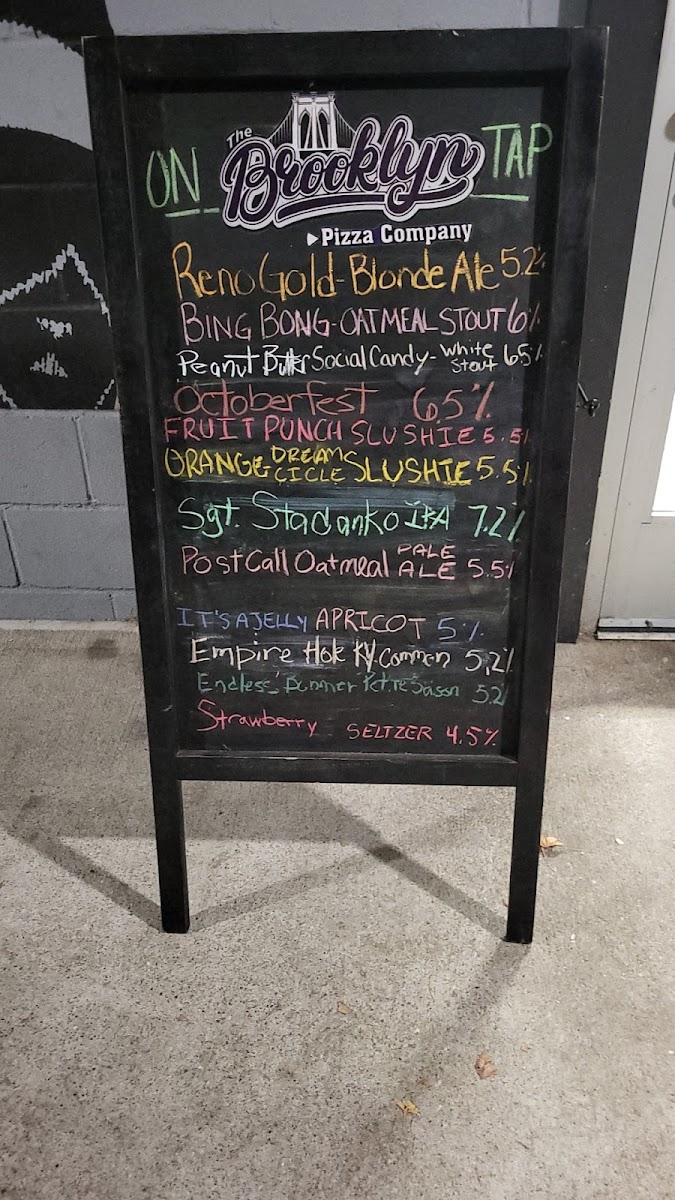 ON The Brooklyn TAP
Pizza Company
Reno Gold - Blonde Ale 5.2%
BING BONG - OATMEAL STOUT 6%
Peanut Butter Social Candy - White Stout 6.5%
Octoberfest 6.5%
FRUIT PUNCH SLUSHIE 5.5%
ORANGE DREAM CICLE SLUSHIE 5.5%
Sgt. Stadanko IPA 7.2%
Post Call Oatmeal PALE ALE 5.5%
IT'S A JELLY APRICOT 5%
Empire Hole KY. Common 5,2%
Endless 5.2
Strawberry SELTZER 4.5%